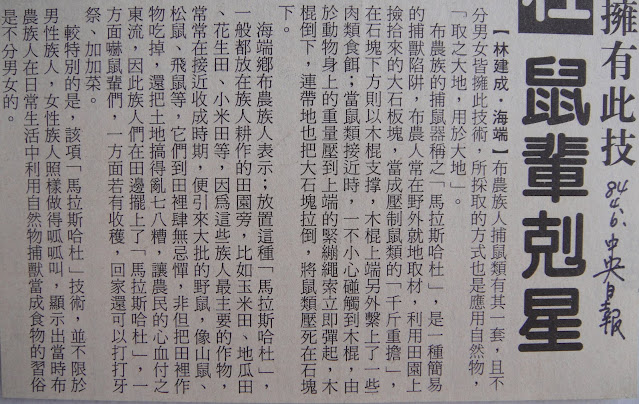 擁有此技
鼠輩剋星
84.4.6.中央日報
【林建成·海端】布農族人捕鼠類有其一套，且不
分男女皆擁此技術，所採取的方式也是應用自然物，
「取之大地，用於大地」。
布農族的捕鼠器稱之「馬拉斯哈杜」，是一種簡易
的捕獸陷阱，布農人常在野外就地取材，利用田園上
撿拾來的大石板塊，當成壓制鼠類的「千斤重擔」，
在石塊下方則以木棍支撐，木棍上端另外繫上了一些
肉類食餌；當鼠類接近時，一不小心碰觸到木棍，由
於動物身上的重量壓到上端的緊繃繩索立即彈起，木
棍倒下，連帶地也把大石塊拉倒，將鼠類壓死在石塊
下。
海端鄉布農族人表示；放置這種「馬拉斯哈杜」，
一般都放在族人耕作的田園旁，比如玉米田、地瓜田
、花生田、小米田等，因為這些族人最主要的作物，
常常在接近收成時期，便引來大批的野鼠，像山鼠、
松鼠、飛鼠等，它們到田裡肆無忌憚，非但把田裡作
物吃掉，還把土地搞得亂七八糟，讓農民的心血付之
東流，因此族人們在田邊擺上了「馬拉斯哈杜」，一
方面嚇鼠輩們，一方面若有收穫，回家還可以打打牙
祭、加加菜。
較特別的是，該項「馬拉斯哈杜」技術，並不限於
男性族人，女性族人照樣做得呱呱叫，顯示出當時布
農族人在日常生活中利用自然物捕獸當成食物的習俗
是不分男女的。